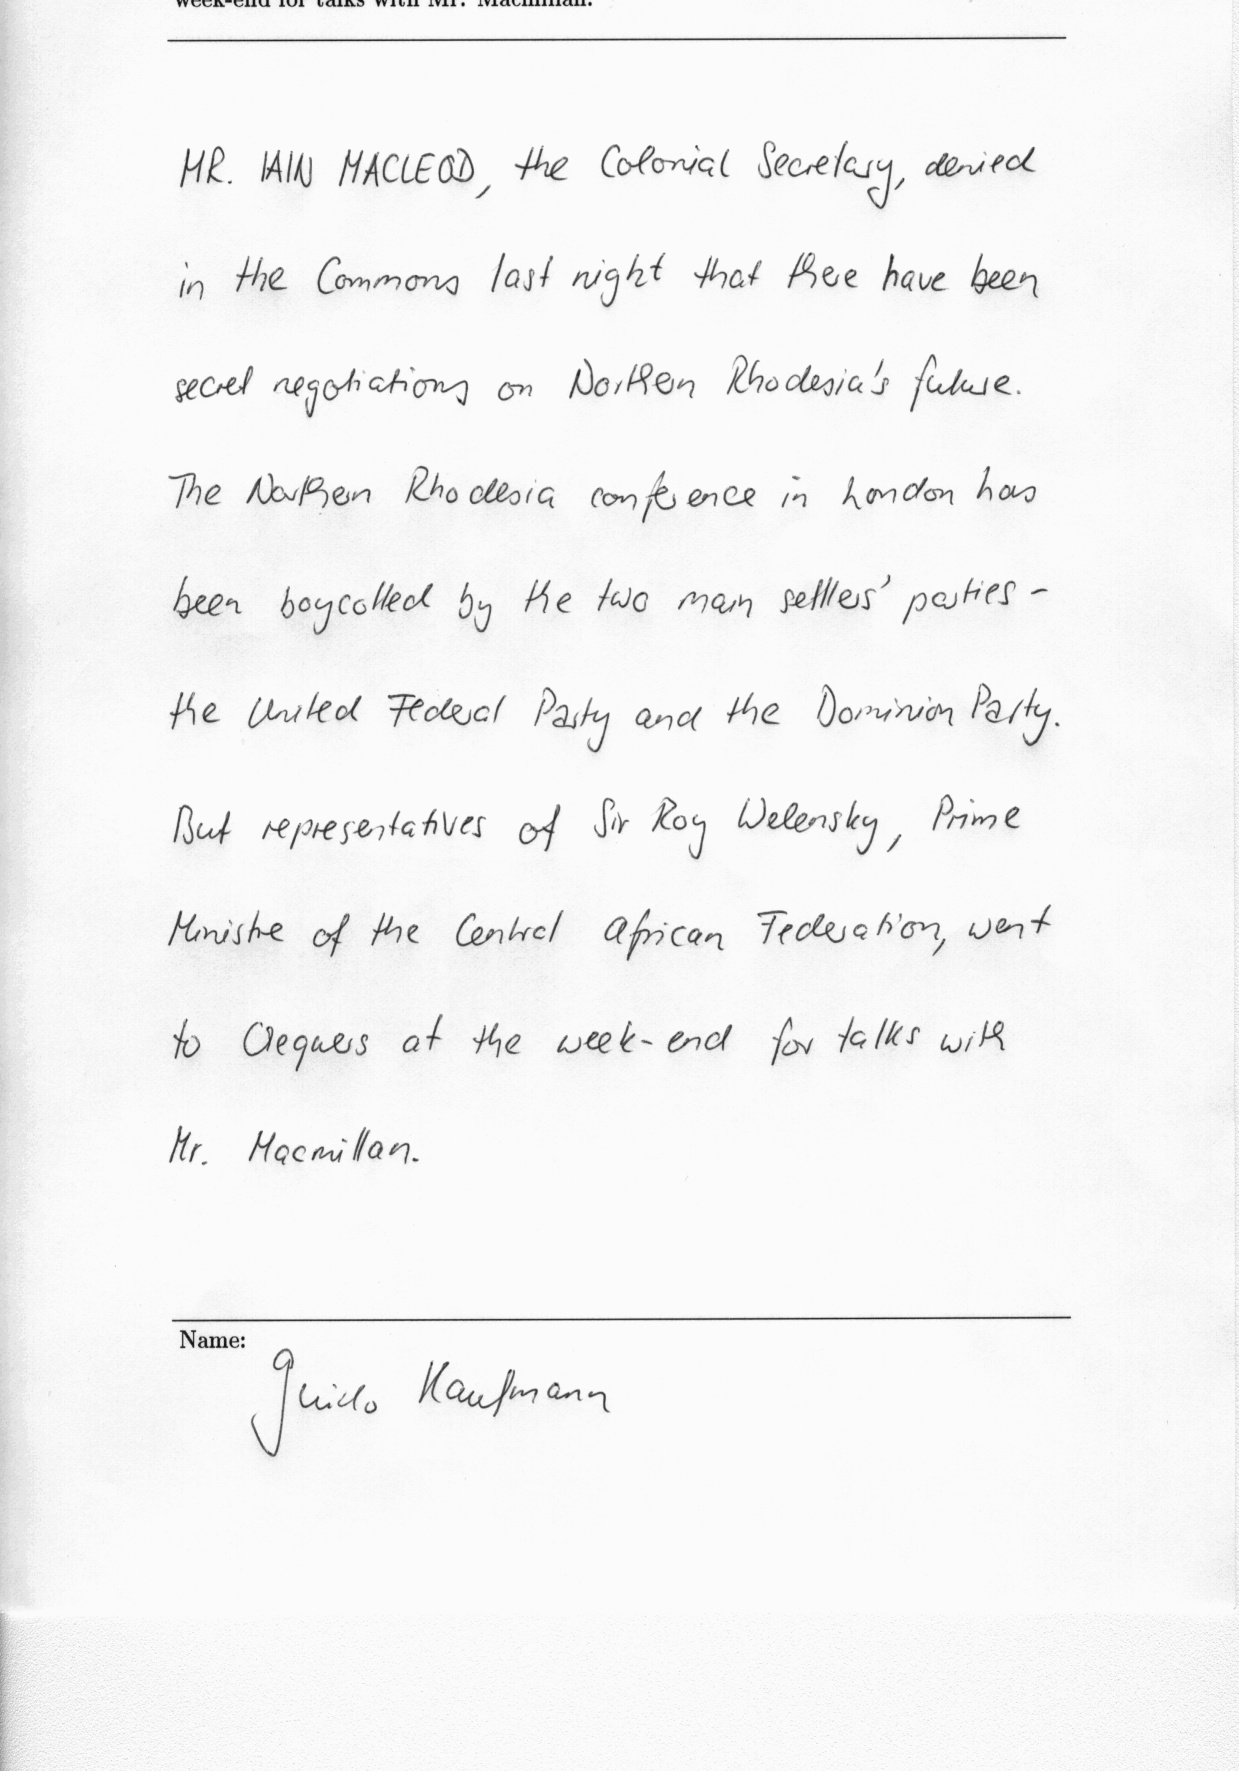 week-end for talks with Mr. Macmillan.
MR. IAIN MACLEOD, the Colonial Secretary, denied
in the Commons last night that there have been
secret negotiations on Northern Rhodesia's future.
The Northern Rhodesia conference in London has
been boycotted by the two main settlers' parties -
the United Federal Party and the Dominion Party.
But representatives of Sir Roy Welensky, Prime
Ministre of the Central African Federation, went
to Chequers at the week-end for talks with
Mr. Macmillan.
Name:
Guido Kaufmann